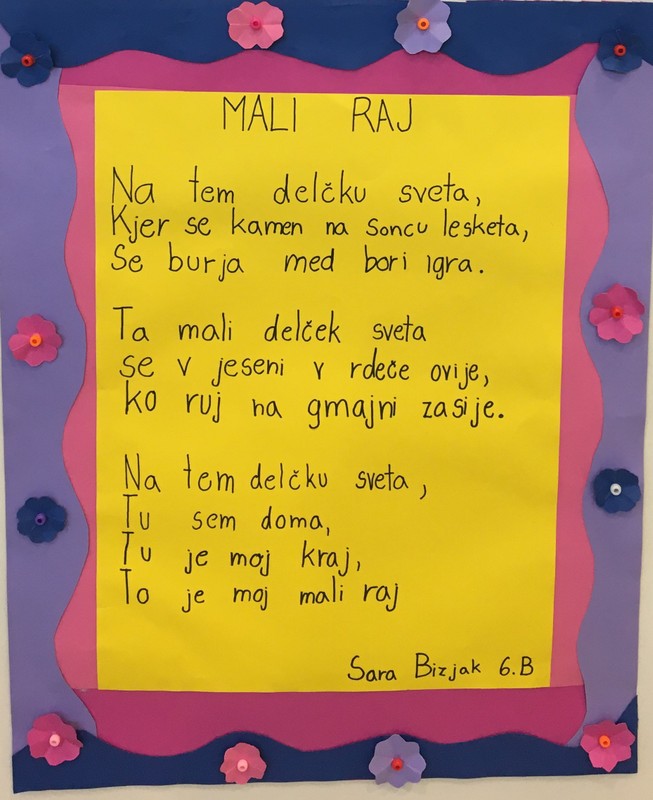 MALI RAJ
Na tem delčku sveta,
Kjer se kamen na soncu lesketa,
Se burja med bori igra.
Ta mali delček sveta
se v jeseni v rdeče ovije,
ko ruj na gmajni zasije.
Na tem delčku sveta,
Tu sem doma,
Tu je moj kraj,
To je moj mali raj
Sara Bizjak 6.B